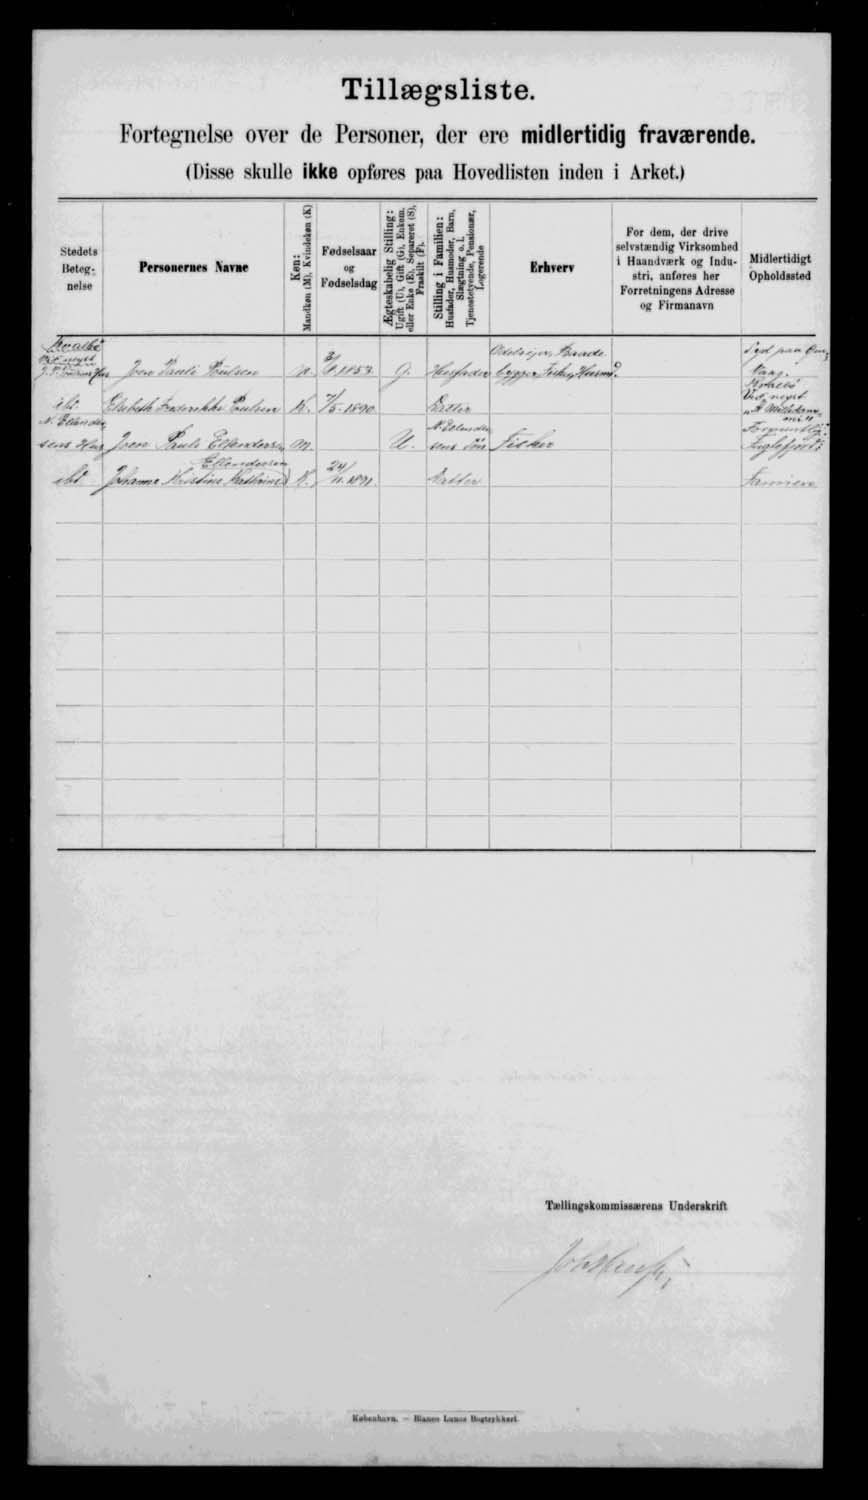 Tillægsliste.
Fortegnelse over de Personer, der ere midlertidig fraværende.
(Disse skulle ikke opføres paa Hovedlisten inden i Arket.)
Stedets Beteg- nelse
Personernes Navne
Køn: Mandkøn (M), Kvindekøn (K)
Fødselsaar og Fødselsdag
Ægteskabelig Stilling: Ugift (U), Gift (G), Enkem. eller Enke (E), Separeret (S), Fraskilt (F).
Stilling i Familien: Husfader, Husmoder, Barn, Slægtning o. l. Tjenestetyende, Pensionær, Logerende
Erhverv
For dem, der drive selvstændig Virksomhed i Haandværk og Indu- stri, anføres her Forretningens Adresse og Firmanavn
Midlertidigt Opholdssted
Kvalbø
Hus Joen Pauli Poulsen M. 1853. G. Husfader Baade bygger, Fisker, Husmd. Vaag.
ibt. Elsebeth Frederikke Poulsen K. 7/5 1890. Datter
N. Ellendersens Hus Joen Pauli Ellendersen M. U. N. Ellendersens Søn Fisker Fuglefjord
ibt Johanne Kristine Kathrine Ellendersen K. 24/11 1891. Datter Famien
Tællingskommissærens Underskrift
København. — Bianco Lunos Bogtrykkeri.